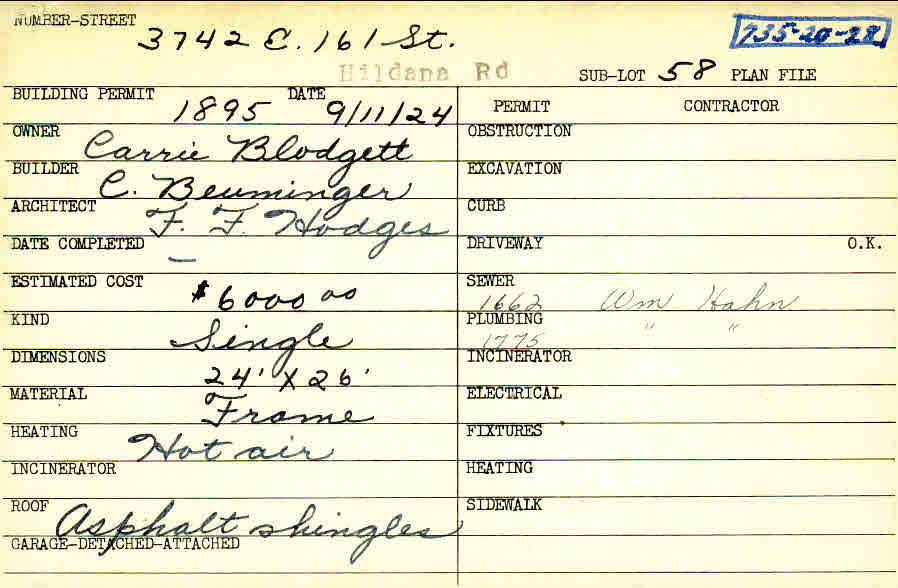 NUMBER-STREET 3742 E. 161 St. 735-20-28
Hildana Rd SUB-LOT 58 PLAN FILE
BUILDING PERMIT 1895 DATE 9/11/24
PERMIT CONTRACTOR
OWNER Carrie Blodgett
OBSTRUCTION
BUILDER C. Beuminger
EXCAVATION
ARCHITECT F. F. Hodges
CURB
DATE COMPLETED —
DRIVEWAY O.K.
ESTIMATED COST $6000 00
SEWER 1662 Wm Hahn
KIND Single
PLUMBING 1775 " "
DIMENSIONS 24' X 26'
INCINERATOR
MATERIAL Frame
ELECTRICAL
HEATING Hot air
FIXTURES
INCINERATOR
HEATING
ROOF Asphalt shingles
SIDEWALK
GARAGE-DETACHED-ATTACHED